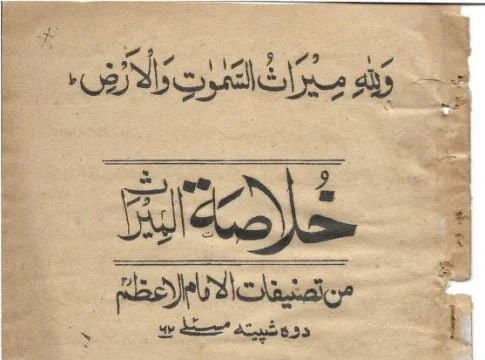 وَلِلّٰهِ مِيْرَاثُ السَّمٰوٰتِ وَالْاَرْضِ ط
خُلاصَة المِيْرَاث
من تصنيفات الامام الاعظم
دوه شپیته مسئلے ٦٢